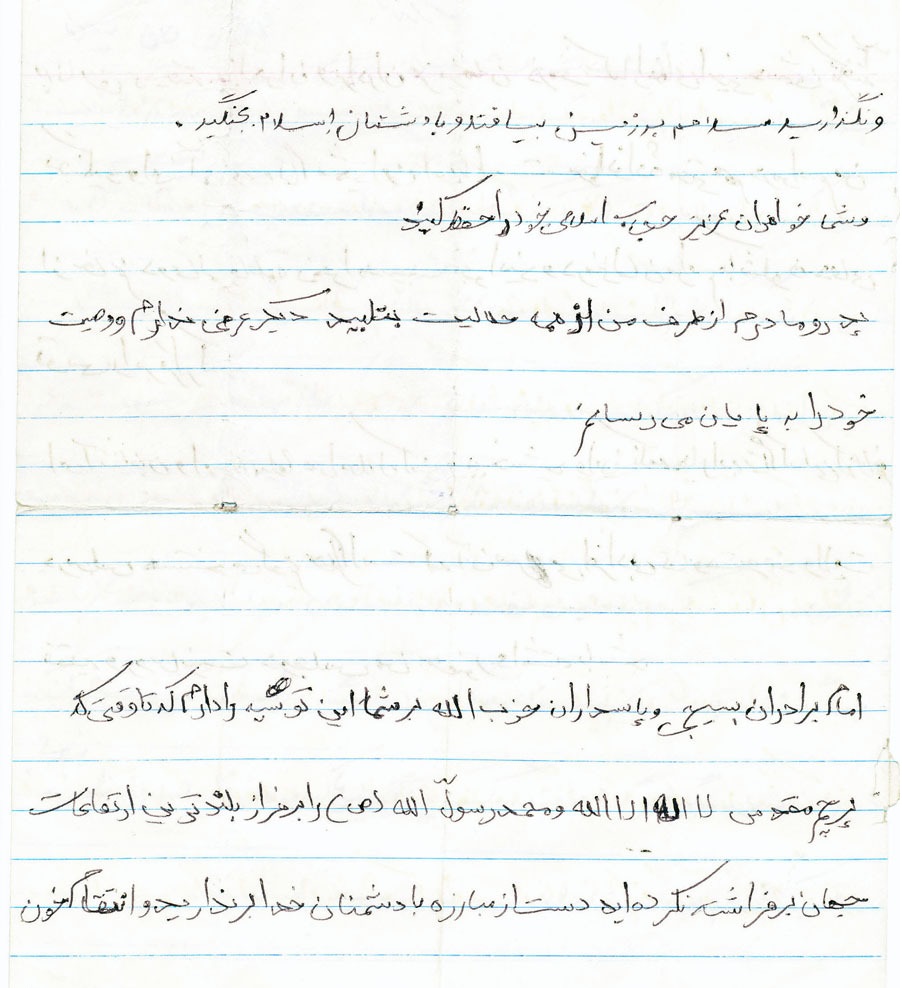 و نگذارید سلاحم بر زمین بیافتد و با دشمنان اسلام بجنگید .
و شما خواهران عزیز حجاب اسلامی خود را حفظ کنید
پدر و مادرم از طرف من از همه حلالیت بطلبید دیگر عرضی ندارم و وصیت
خود را به پایان می رسانم
امام برادران بسیجی و پاسداران حزب الله بر شما این توصیه را دارم که تا وقتی که
پرچم مقدس لا اله الا الله و محمد رسول الله (ص) را بر فراز بلندترین ارتفاعات
جهان برفراشته نکرده اید دست از مبارزه با دشمنان خدا برندارید و انتقام خون